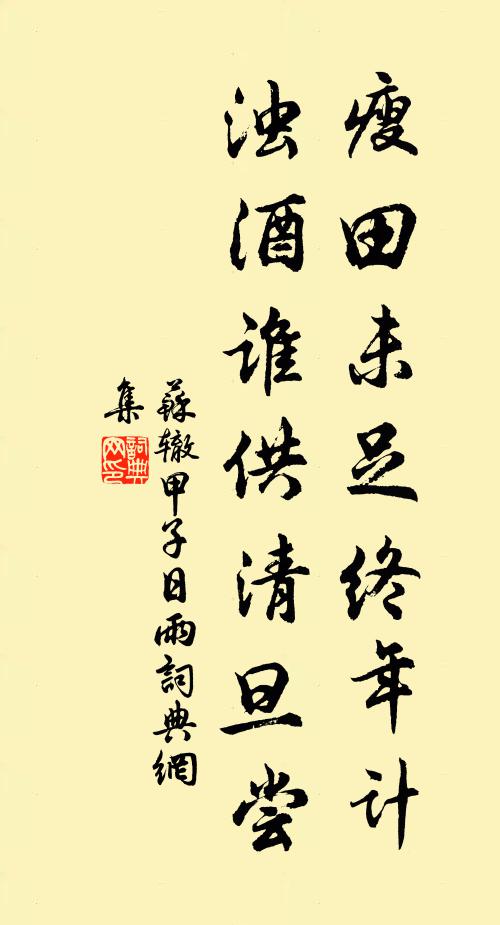 瘦田未足终年计
浊酒谁供清旦尝
蘇辙甲子日雨詞典網
集
詞典
网印